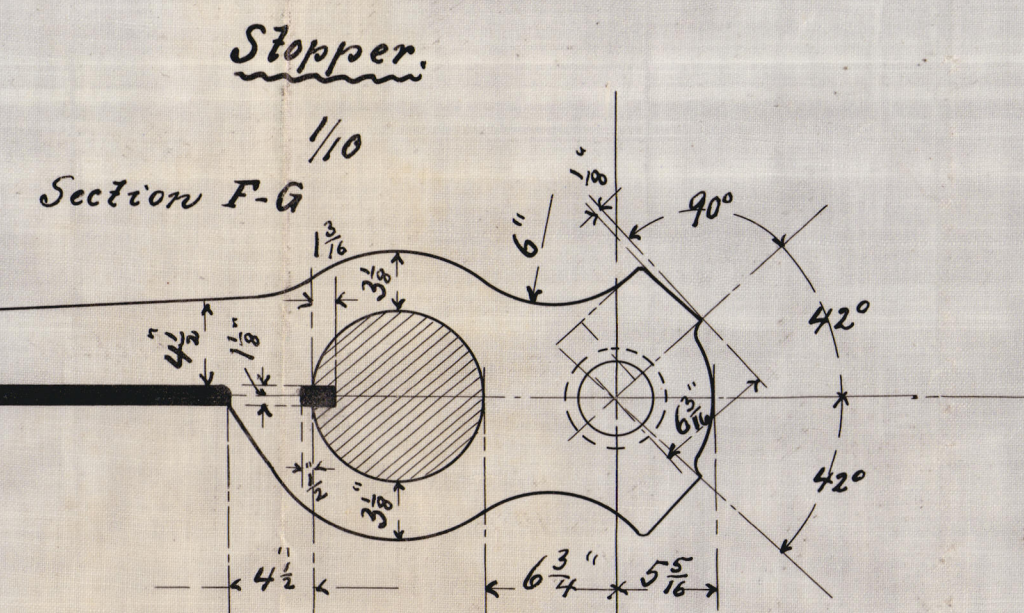 Stopper.
1/10
Section F-G
1/8"
90°
1 3/16
3 1/8"
6"
42°
4 1/2"
1 1/8"
6 3/16
1/2"
3 1/8"
42°
4 1/2
6 3/4"
5 5/16